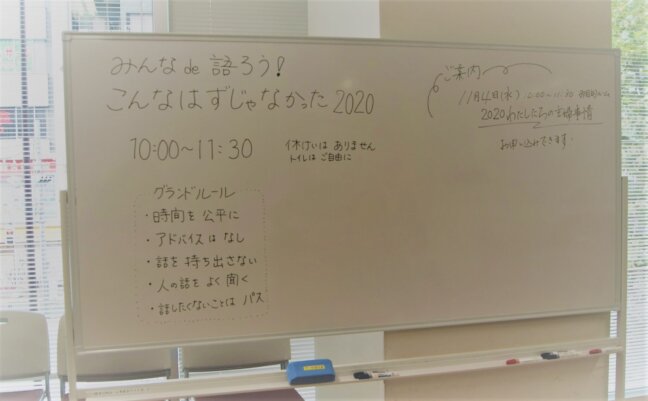 みんな de 語ろう!
こんなはずじゃなかった 2020
10:00~11:30
休けいは ありません
トイレは ご自由に
グランドルール
・時間を 公平に
・アドバイスは なし
・話を 持ち出さない
・人の話を よく 聞く
・話したくないことは パス
ご案内
11月4日(水) 10:00~11:30
2020 わたしたちの主婦事情
お申し込みできます。